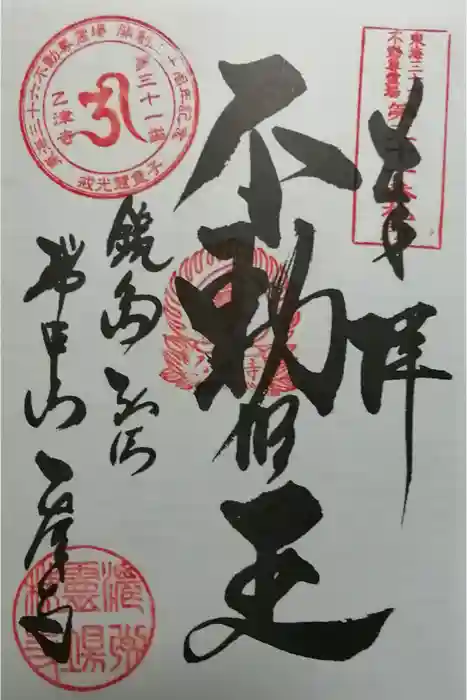 東海三十六
不動尊霊場
第三十一番
奉拝
不動明王
鏡島弘法
瑞甲山 乙津寺
東海三十六不動尊霊場 開創二十周年記念
第三十一番
乙津寺
戒光慧童子